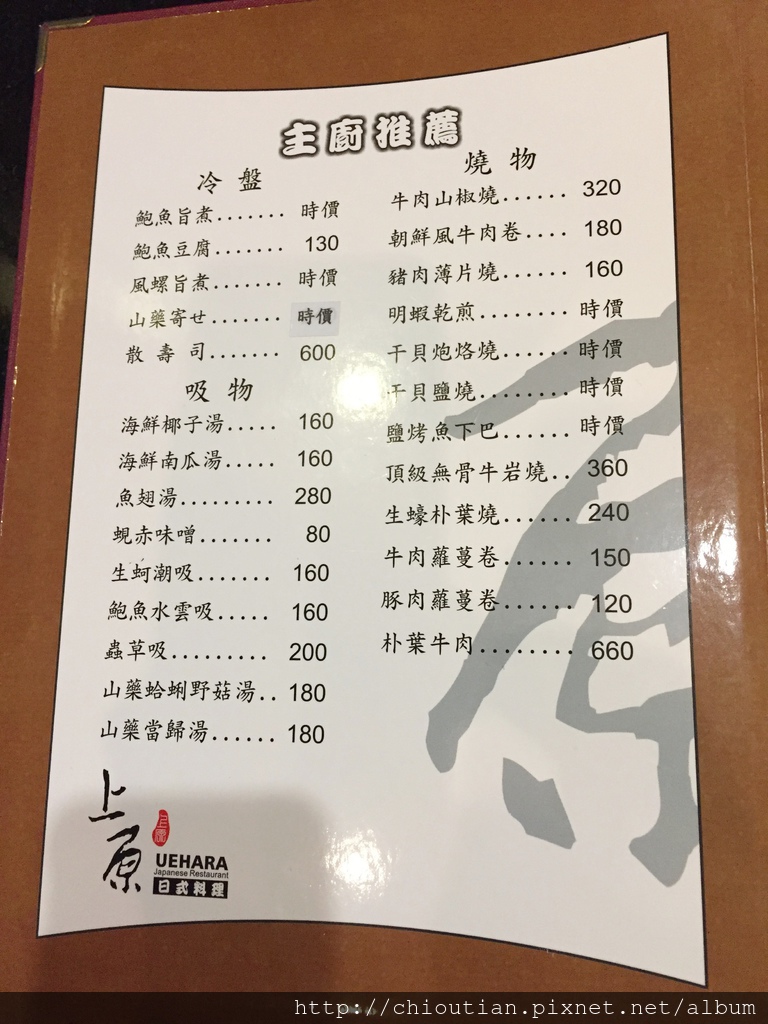 主廚推薦
冷盤
鮑魚旨煮....... 時價
鮑魚豆腐....... 130
風螺旨煮....... 時價
山藥寄せ....... 時價
散壽司....... 600
吸物
海鮮椰子湯..... 160
海鮮南瓜湯..... 160
魚翅湯......... 280
蜆赤味噌....... 80
生蚵潮吸....... 160
鮑魚水雲吸..... 160
蟲草吸......... 200
山藥蛤蜊野菇湯.. 180
山藥當歸湯...... 180
燒物
牛肉山椒燒...... 320
朝鮮風牛肉卷.... 180
豬肉薄片燒...... 160
明蝦乾煎........ 時價
干貝炮烙燒...... 時價
干貝鹽燒........ 時價
鹽烤魚下巴...... 時價
頂級無骨牛岩燒.. 360
生蠔朴葉燒...... 240
牛肉蘿蔓卷...... 150
豚肉蘿蔓卷...... 120
朴葉牛肉........ 660
上原
UEHARA
Japanese Restaurant
日式料理
http://chioutian.pixnet.net/album